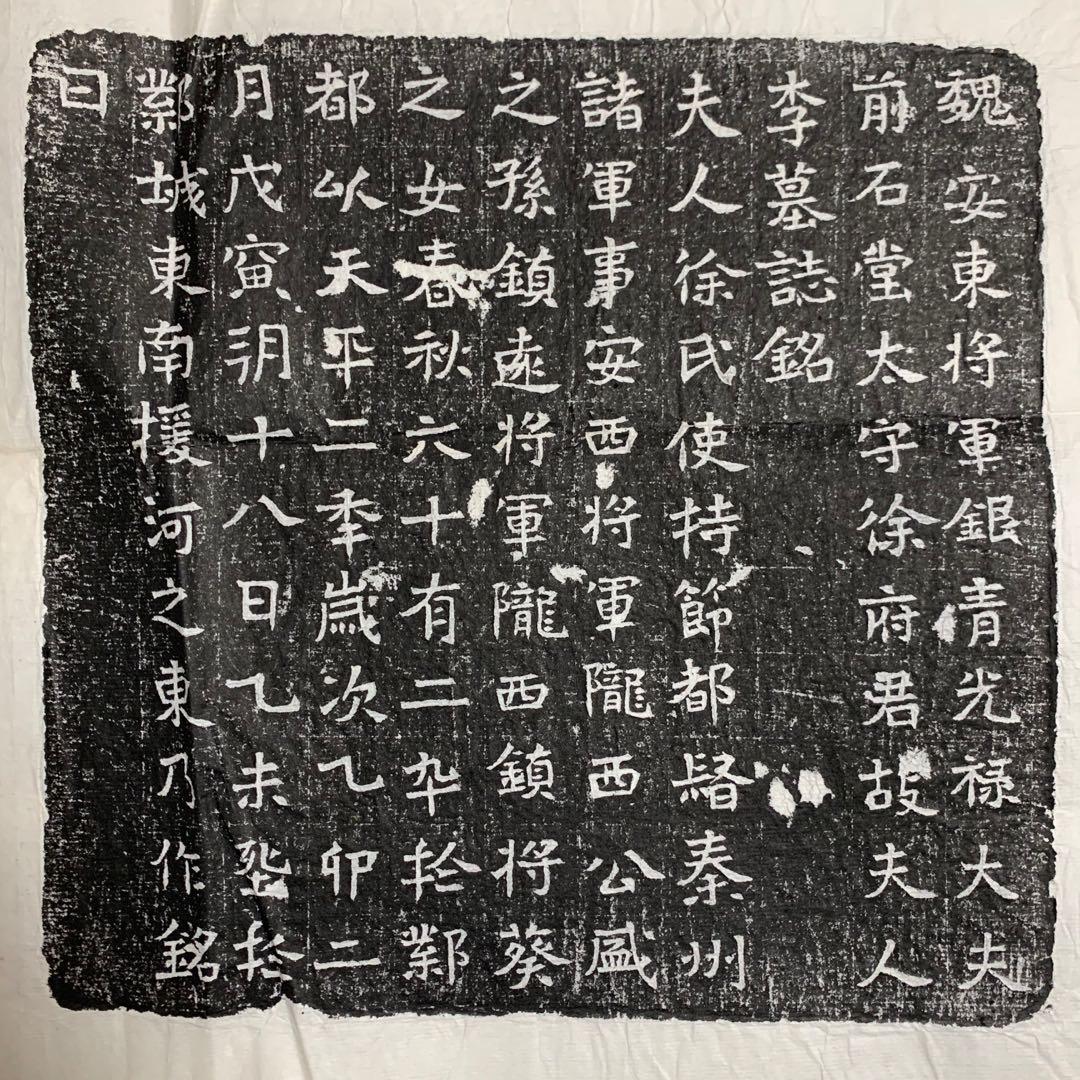 魏安東將軍銀青光祿大夫
前石堂太守徐府君故夫人
李墓誌銘
夫人徐氏使持節都督秦州
諸軍事安西將軍隴西公
之孫鎮遠將軍隴西鎮將葵
之女春秋六十有二卒於鄴
都以天平二年歲次乙卯二
月戊寅朔十八日乙未塟於
鄴城東南援河之東乃作銘
曰